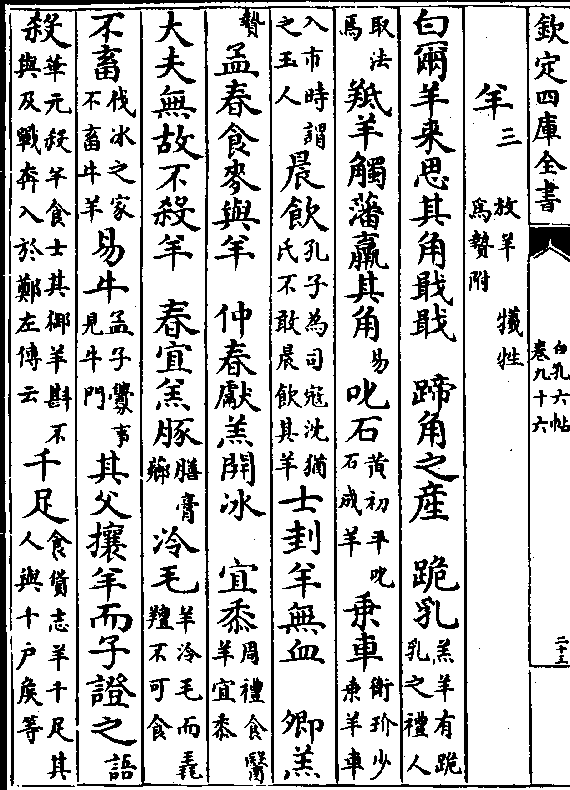 欽定四庫全書 白孔六帖卷九十六 二十三
羊三 放羊為贄附 犠牲
曰爾羊來思其角戢戢 蹄角之産 跪乳 羔羊有跪乳之禮人
取法焉 羝羊觸藩羸其角 易 叱石 黄初平叱石成羊 乗車 衛玠少乗羊車
入市時謂之玉人 晨飲 孔子為司寇沈猶氏不敢晨飲其羊 士刲羊無血 卿羔
贄 孟春食麥與羊 仲春獻羔開冰 宜黍 周禮食醫羊宜黍
大夫無故不殺羊 春宜羔豚 膳膏薌 冷毛 羊冷毛而毳羶不可食
不畜 伐冰之家不畜牛羊 易牛 孟子釁事見牛門 其父攘羊而子證之 語
殺 華元殺羊食士其御羊斟不與及戰奔入於鄭左傳云 千足 食貨志羊千足其人與千户侯等